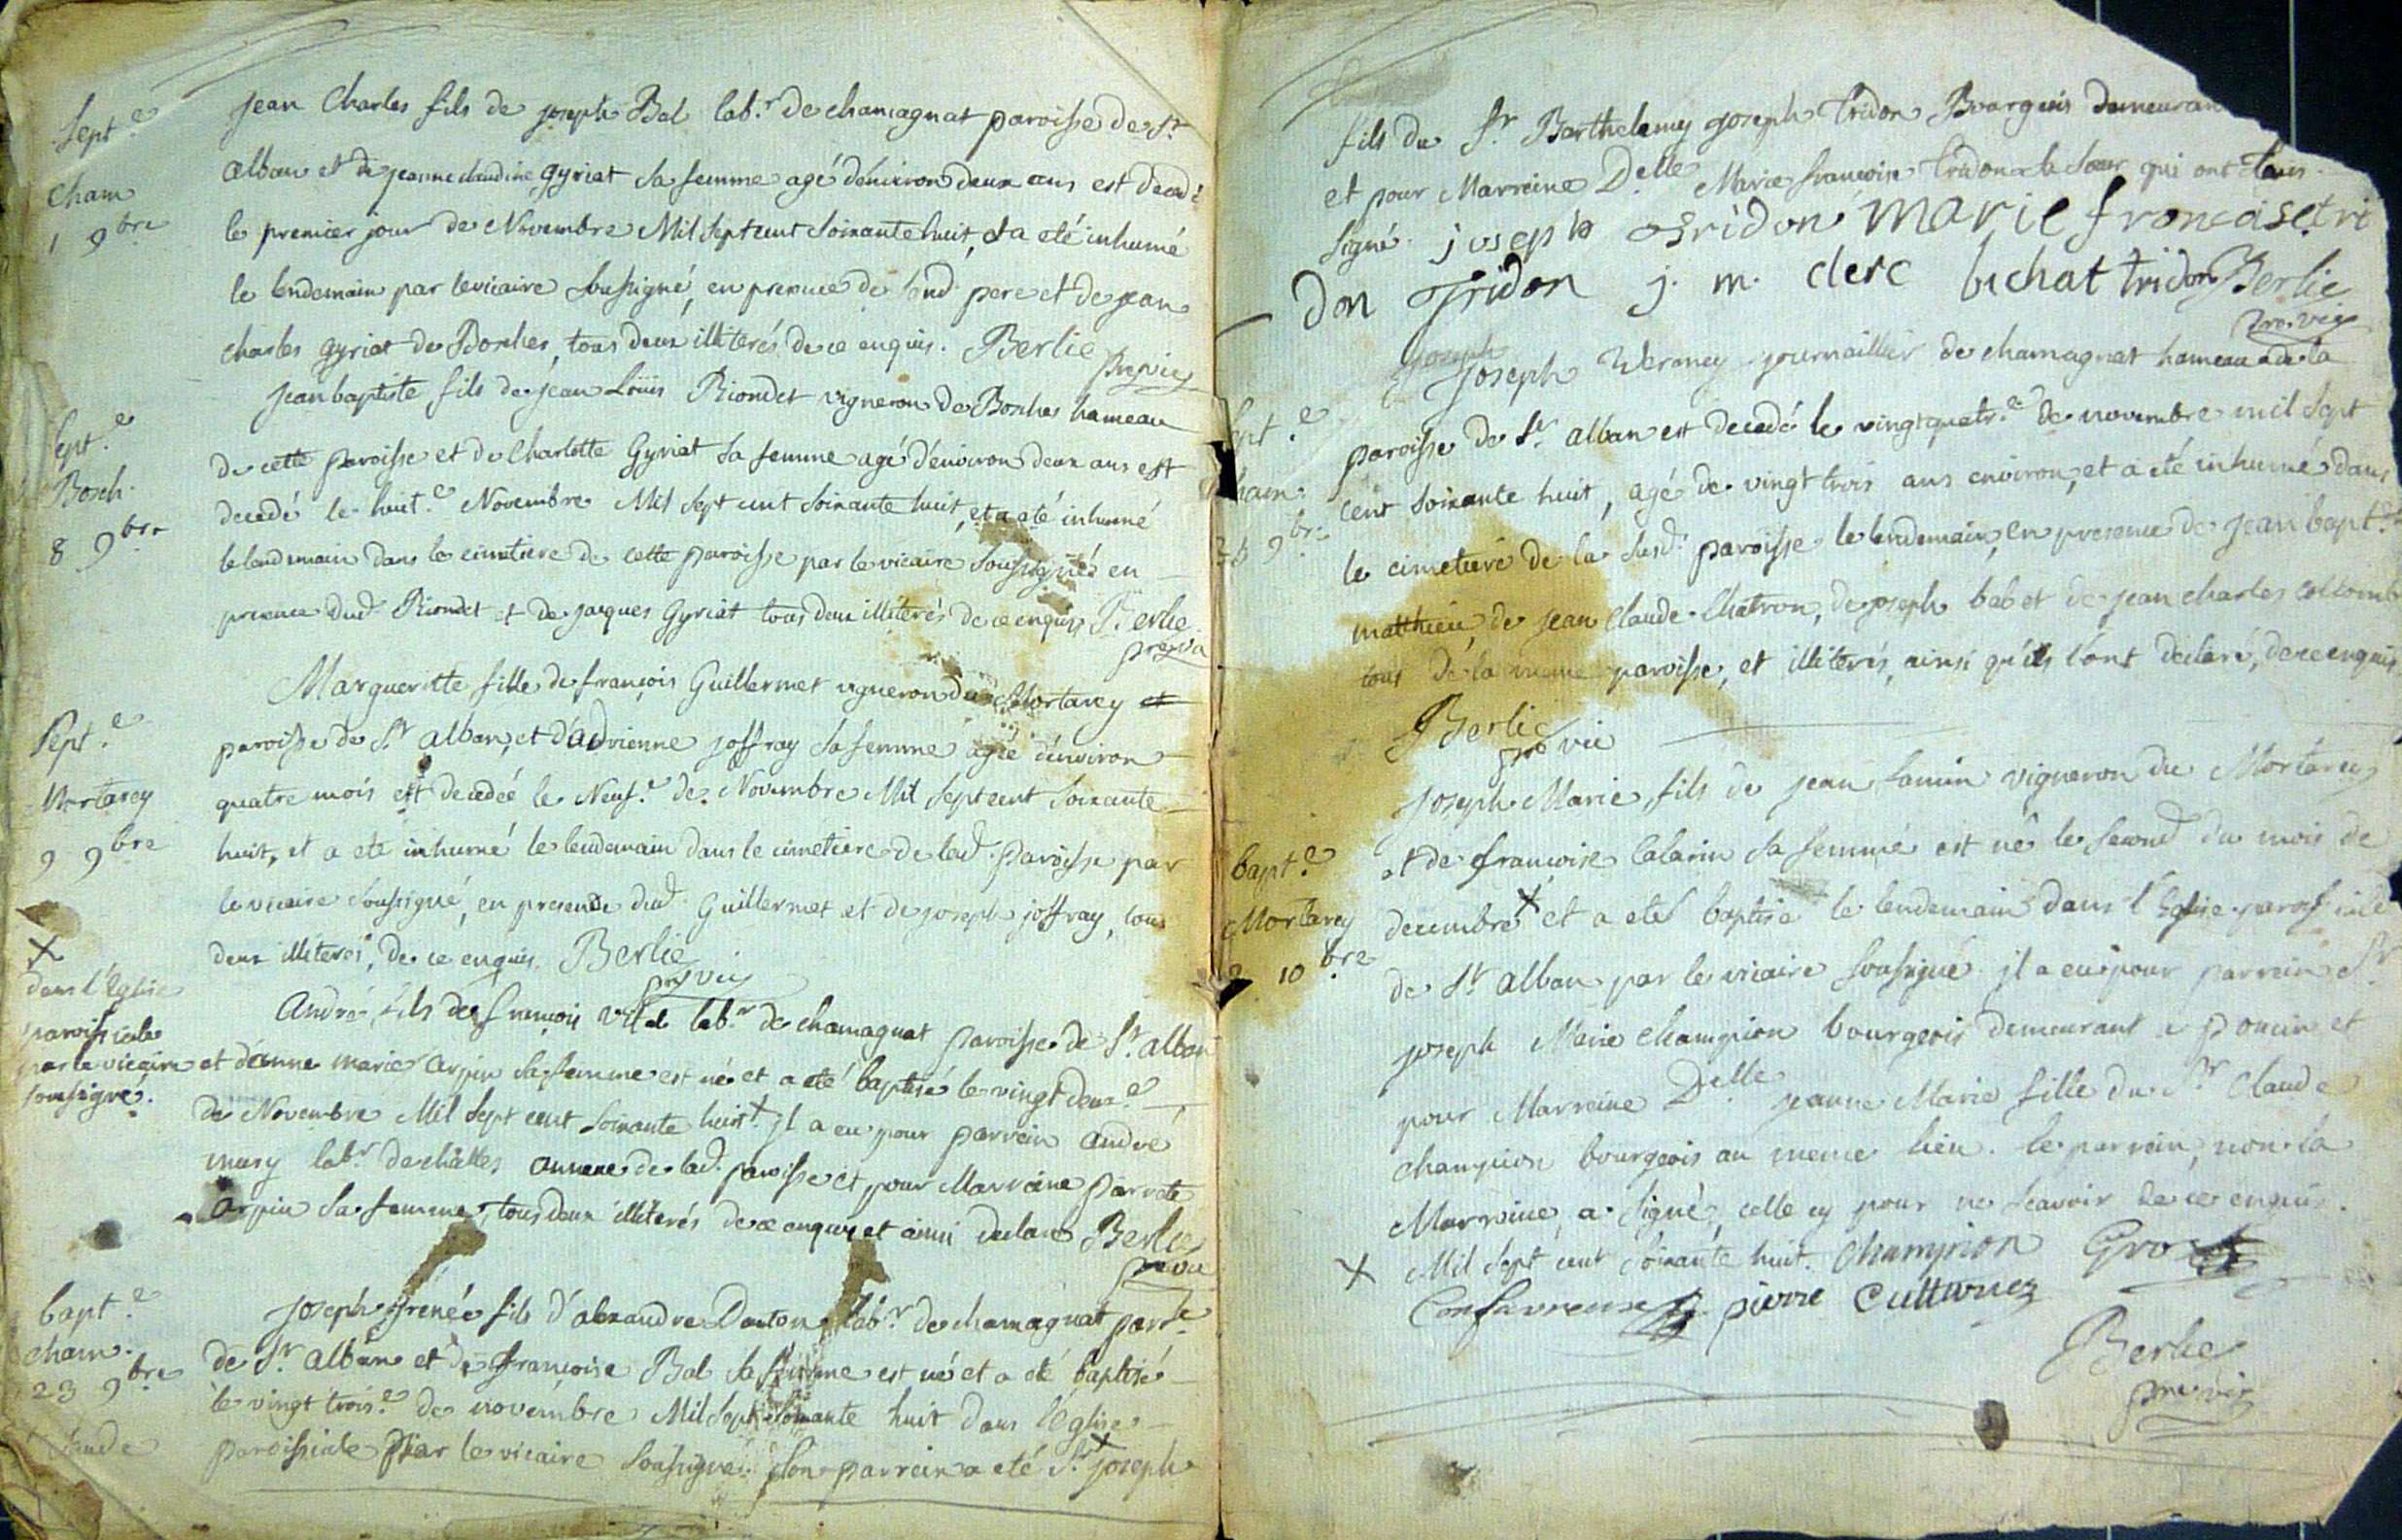 Sept.e
Cham
1 9bre
Jean Charles fils de joseph Bal lab.r de chamagnat paroisse de St
alban et de jeanne claudine gyriat sa femme agé denviron deux ans est decedé
le premier jour de Novembre Mil Sept cent soixante huit, et a eté inhumé
le lendemain par le vicaire soussigné, en presence de sond. pere et de jean
charles gyriat de Bosches, tous deux illiterés de ce enquis. Berlie
pre vic
Sept.e
Bosch.
8 9bre
Jean baptiste fils de jean Loüis Riondet vigneron de Bosches hameau
de cette paroisse et de Charlotte Gyriat sa femme agé d'environ deux ans est
decedé le huit.e Novembre Mil Sept cent soixante huit, et a eté inhumé
le lendemain dans le cimetiere de cette paroisse par le vicaire soussigné en
presence dud. Riondet et de jacques Gyriat tous deux illiterés de ce enquis Berlie
pre vic
Sept.e
Mortarey
9 9bre
Margueritte fille de françois Guillermet vigneron du Mortarey et
paroisse de St alban, et d'adrienne joffray sa femme agée d'environ
quatre mois est decedée le Neuf.e de Novembre Mil Sept cent soixante
huit, et a eté inhumé le lendemain dans le cimetiere de lad. paroisse par
le vicaire soussigné, en presence dud. Guillermet et de joseph joffray, tous
deux illiterés, de ce enquis Berlie
pre vic
X
dans l'Eglise
paroissiale
par le vicaire
soussigné.
André fils de françois vital lab.r de chamagnat paroisse de St. alban
et d'anne marie arpin sa femme est né et a eté baptisé le vingt deux.e
de Novembre Mil Sept cent soixante huit X. jl a eu pour parrein andré
musy lab.r de châtles annexe de lad. paroisse et pour Marreine parrate
arpin sa femme, tous deux illiterés de ce enquis et ainsi declaré Berlie
pre vic
bapt.e
cham.
23 9bre
Joseph jrenée fils d'alexandre Douton lab.r de chamagnat parsse
de St. alban et de françoise Bal sa femme est né et a eté baptisé
le vingt trois.e de novembre Mil Sept soixante huit dans l'Eglise
paroissiale par le vicaire soussigné. Son parrein a eté Sr X joseph
Claude
fils du Sr. Barthelemy joseph tridon Bourgeois demeuran
et pour Marreine Delle Marie francoise tridon sa soeur qui ont tous
signé. joseph tridon marie francaise tri
don Tridon j. m. clerc bichat tridon Berlie
pre. vic
Sept.e
cham.
25 9bre
Joseph
Joseph journaillier de chamagnat hameau de la
paroisse de St. alban est decedé le vingt quatr.e de novembre mil Sept
cent soixante huit, agé de vingt trois ans environ, et a eté inhumé dans
le cimetiere de la susd. paroisse le lendemain, en presence de jean bapt.e
matthieu, de jean claude Chatron, de joseph bal et de jean charles collomb
tous de la meme paroisse, et illiterés, ainsi qu'ils l'ont declaré, de ce enquis
Berlie
pre vic
bapt.e
Mortarey
3 10bre
Joseph Marie fils de jean Samin vigneron du Mortarey
et de françoise Calarin sa femme est né le second du mois de
decembre X et a eté baptisé le lendemain dans l'Eglise parossiale
de St. alban par le vicaire soussigné. jl a eu pour parrein Sr.
joseph Marie champion bourgeois demeurant a poncin et
pour Marreine Delle jeanne Marie fille du Sr. Claude
champion bourgeois au meme lieu. le parrein, non la
Marreine, a signé, celle cy pour ne scavoir de ce enquis.
X Mil Sept cent soixante huit. Champion Gros
Confavreux pierre cutturiez
Berlie
pre vic